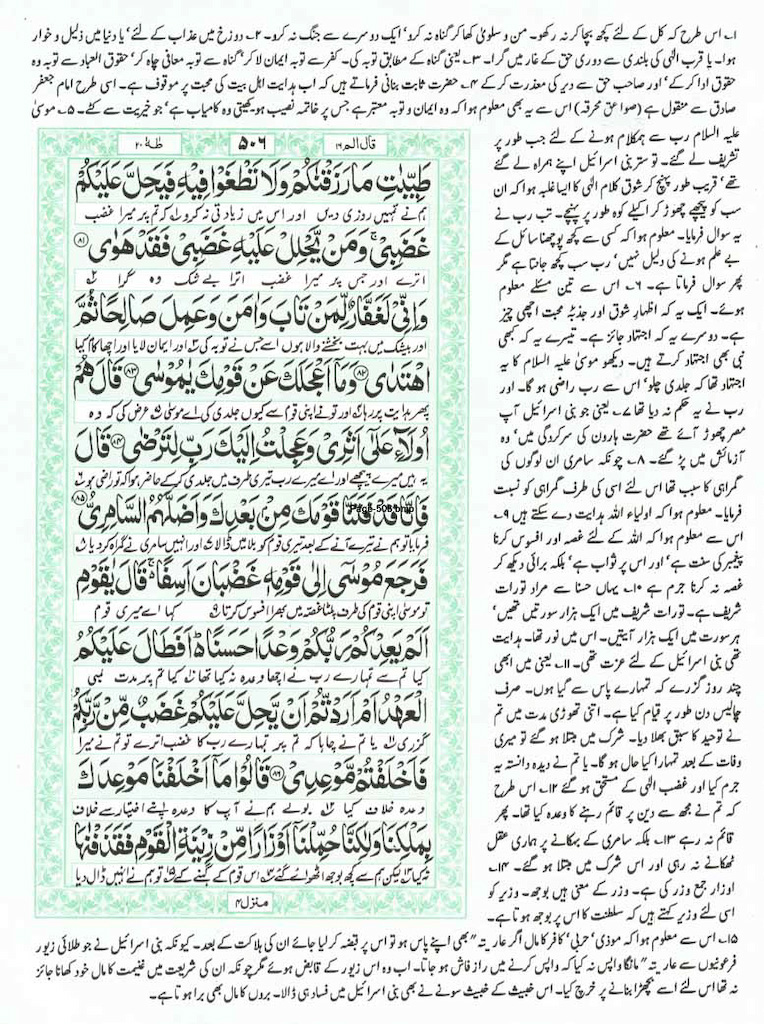 ۱۔ اس طرح کہ کل کے لئے کچھ بچا کر نہ رکھو۔ من و سلویٰ کھا کر گناہ نہ کرو' ایک دوسرے سے جنگ نہ کرو۔ ۲۔ دوزخ میں عذاب کے لئے' یا دنیا میں ذلیل و خوار
ہوا۔ یا قرب الٰہی کی بلندی سے دوری حق کے غار میں گرا۔ ۳۔ یعنی گناہ کے مطابق توبہ کی۔ کفر سے توبہ ایمان لا کر' گناہ سے توبہ معافی چاہ کر' حقوق العباد سے توبہ وہ
حقوق ادا کر کے' اور صاحب حق سے دیر کی معذرت کر کے ۴۔ حضرت ثابت بنانی فرماتے ہیں کہ اب ہدایت اہل بیت کی محبت پر موقوف ہے۔ اسی طرح امام جعفر
صادق سے منقول ہے (صواعق محرقہ) اس سے یہ بھی معلوم ہوا کہ وہ ایمان و توبہ معتبر ہے جس پر خاتمہ نصیب ہو کھیتی وہ کامیاب ہے' جو خیریت سے کٹے۔ ۵۔ موسیٰ
علیہ السلام رب سے ہمکلام ہونے کے لئے جب طور پر
تشریف لے گئے۔ تو ستر بنی اسرائیل اپنے ہمراہ لے گئے
تھے' قریب طور پہنچ کر شوق کلام الٰہی کا ایسا غلبہ ہوا کہ ان
سب کو پیچھے چھوڑ کر اکیلے کوہ طور پر پہنچے۔ تب رب نے
یہ سوال فرمایا۔ معلوم ہوا کہ کسی سے کچھ پوچھنا سائل کے
بے علم ہونے کی دلیل نہیں' رب سب کچھ جانتا ہے مگر
پھر سوال فرماتا ہے۔ ۶۔ اس سے تین مسئلے معلوم
ہوئے۔ ایک یہ کہ اظہار شوق اور جذبۂ محبت اچھی چیز
ہے۔ دوسرے یہ کہ اجتہاد جائز ہے۔ تیسرے یہ کہ کبھی
نبی بھی اجتہاد کرتے ہیں۔ دیکھو موسیٰ علیہ السلام کا یہ
اجتہاد تھا کہ جلدی چلو' اس سے رب راضی ہو گا۔ اور
رب نے یہ حکم نہ دیا تھا ۷۔ یعنی جو بنی اسرائیل آپ
مصر چھوڑ آئے تھے حضرت ہارون کی سرکردگی میں' وہ
آزمائش میں پڑ گئے۔ ۸۔ چونکہ سامری ان لوگوں کی
گمراہی کا سبب تھا اس لئے اسی کی طرف گمراہی کو نسبت
فرمایا۔ معلوم ہوا کہ اولیاء اللہ ہدایت دے سکتے ہیں ۹۔
اس سے معلوم ہوا کہ اللہ کے لئے غصہ اور افسوس کرنا
پیغمبر کی سنت ہے' اور اس پر ثواب ہے' بلکہ برائی دیکھ کر
غصہ نہ کرنا جرم ہے ۱۰۔ یہاں حسنا سے مراد تورات
شریف ہے۔ تورات شریف میں ایک ہزار سورتیں تھیں'
ہر سورت میں ایک ہزار آیتیں۔ اس میں نور تھا۔ ہدایت
تھی بنی اسرائیل کے لئے عزت تھی۔ ۱۱۔ یعنی میں ابھی
چند روز گزرے کہ تمہارے پاس سے گیا ہوں۔ صرف
چالیس دن طور پر قیام کیا ہے۔ اتنی تھوڑی مدت میں تم
نے توحید کا سبق بھلا دیا۔ شرک میں مبتلا ہو گئے تو میری
وفات کے بعد تمہارا کیا حال ہو گا۔ یا تم نے دیدہ دانستہ یہ
جرم کیا اور غضب الٰہی کے مستحق ہو گئے ۱۲۔ اس طرح
کہ تم نے مجھ سے دین پر قائم رہنے کا وعدہ کیا تھا۔ پھر
قائم نہ رہے ۱۳۔ بلکہ سامری کے بہکانے پر ہماری عقل
ٹھکانے نہ رہی اور اس شرک میں مبتلا ہو گئے۔ ۱۴۔
اوزار جمع وزر کی ہے۔ وزر کے معنی ہیں بوجھ۔ وزیر کو
اسی لئے وزیر کہتے ہیں کہ سلطنت کا اس پر بوجھ ہوتا ہے۔
قال الم ۱۶ ۵۰۶ طٰہٰ ۲۰
طَيِّبٰتِ مَا رَزَقْنٰكُمْ وَلَا تَطْغَوْا فِيْهِ فَيَحِلَّ عَلَيْكُمْ
ہم نے تمہیں روزی دیں اور اس میں زیادتی نہ کرو کہ تم پر میرا غضب
غَضَبِيْ ۚ وَمَنْ يَّحْلِلْ عَلَيْهِ غَضَبِيْ فَقَدْ هَوٰى ۸۱
اترے اور جس پر میرا غضب اترا بے شک وہ گرا ۲
وَاِنِّيْ لَغَفَّارٌ لِّمَنْ تَابَ وَاٰمَنَ وَعَمِلَ صَالِحًا ثُمَّ
اور بیشک میں بہت بخشنے والا ہوں اسے جس نے توبہ کی ۳ اور ایمان لایا اور اچھا کام کیا
اهْتَدٰى ۸۲ وَمَآ اَعْجَلَكَ عَنْ قَوْمِكَ يٰمُوْسٰى ۸۳ قَالَ هُمْ
پھر ہدایت پر رہا ۴ اور تو نے اپنی قوم سے کیوں جلدی کی اے موسیٰ ۵ عرض کی کہ وہ
اُولَآءِ عَلٰٓى اَثَرِيْ وَعَجِلْتُ اِلَيْكَ رَبِّ لِتَرْضٰى ۸۴ قَالَ
یہ ہیں میرے پیچھے اور اے میرے رب تیری طرف میں جلدی کر کے حاضر ہوا کہ تو راضی ہو ۶
فَاِنَّا قَدْ فَتَنَّا قَوْمَكَ مِنْۢ بَعْدِكَ وَاَضَلَّهُمُ السَّامِرِيُّ ۸۵
Page-506.bmp
فرمایا تو ہم نے تیرے آنے کے بعد تیری قوم کو بلا میں ڈالا ۷ اور انہیں سامری نے گمراہ کر دیا ۸
فَرَجَعَ مُوْسٰٓى اِلٰى قَوْمِهٖ غَضْبَانَ اَسِفًا ۚ قَالَ يٰقَوْمِ
تو موسیٰ اپنی قوم کی طرف پلٹا غصہ میں بھرا افسوس کرتا ۹ کہا اے میری قوم
اَلَمْ يَعِدْكُمْ رَبُّكُمْ وَعْدًا حَسَنًا ۚ اَفَطَالَ عَلَيْكُمُ
کیا تم سے تمہارے رب نے اچھا وعدہ نہ کیا تھا ۱۰ کیا تم پر مدت لمبی
الْعَهْدُ اَمْ اَرَدْتُّمْ اَنْ يَّحِلَّ عَلَيْكُمْ غَضَبٌ مِّنْ رَّبِّكُمْ
گزری ۱۱ یا تم نے چاہا کہ تم پر تمہارے رب کا غضب اترے تو تم نے میرا
فَاَخْلَفْتُمْ مَّوْعِدِيْ ۸۶ قَالُوْا مَآ اَخْلَفْنَا مَوْعِدَكَ
وعدہ خلاف کیا ۱۲ بولے ہم نے آپ کا وعدہ اپنے اختیار سے خلاف
بِمَلْكِنَا وَلٰكِنَّا حُمِّلْنَآ اَوْزَارًا مِّنْ زِيْنَةِ الْقَوْمِ فَقَذَفْنٰهَا
نہ کیا ۱۳ لیکن ہم سے کچھ بوجھ اٹھوائے گئے ۱۴ اس قوم کے گہنے کے ۱۵ تو ہم نے انہیں ڈال دیا
منزل ۴
۱۵۔ اس سے معلوم ہوا کہ موذی' حربی' کافر کا مال اگر عاریتہً بھی اپنے پاس ہو تو اس پر قبضہ کر لیا جائے ان کی ہلاکت کے بعد۔ کیونکہ بنی اسرائیل نے جو طلائی زیور
فرعونیوں سے عاریتہً مانگا واپس نہ کیا کہ واپس کرنے میں راز فاش ہو جاتا۔ اب وہ اس زیور کے قابض ہوئے مگر چونکہ ان کی شریعت میں غنیمت کا مال خود کھانا جائز
نہ تھا اس لئے اسے بچھڑا بنانے پر خرچ کیا۔ اس خبیث کے خبیث سونے نے بھی بنی اسرائیل میں فساد ہی ڈالا۔ بروں کا مال بھی برا ہوتا ہے۔